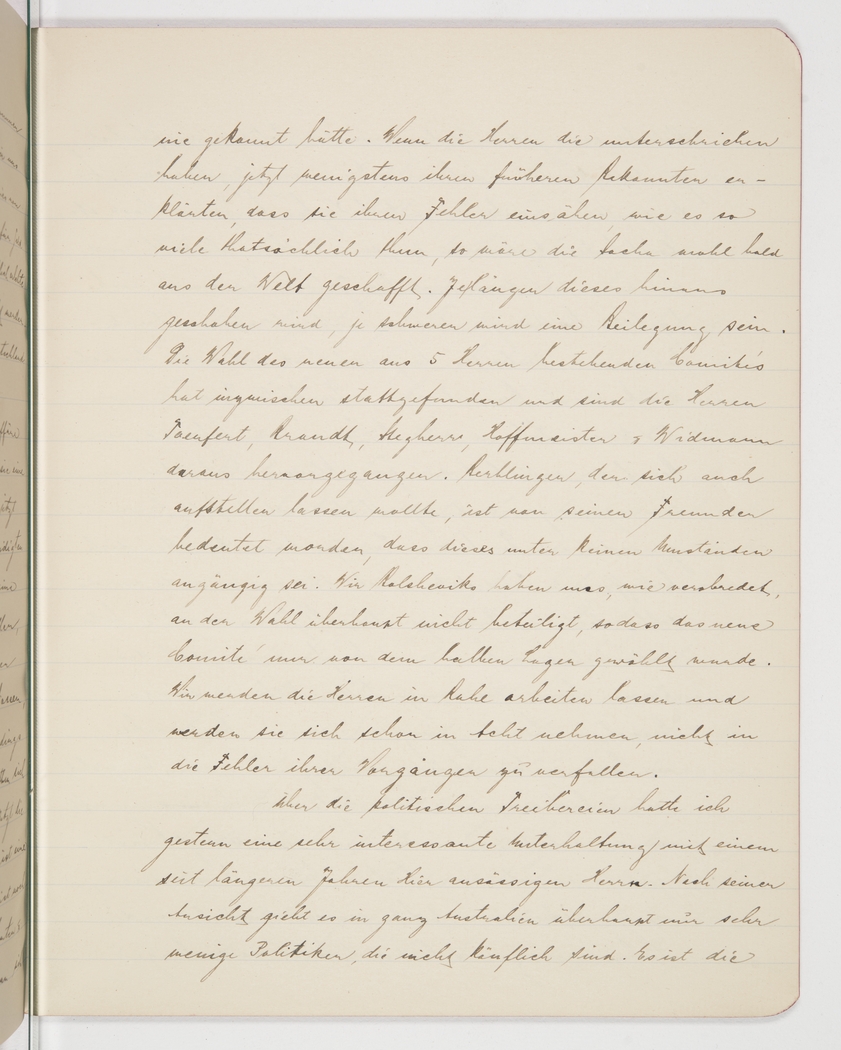 nie gekannt hätte. Wenn die Herren die unterschrieben
haben, jetzt wenigstens ihren früheren Bekannten er-
klärten, dass sie ihren Fehler einsähen, wie es so
viele thatsächlich thun, so wäre die Sache wohl bald
aus der Welt geschafft. Je länger dieses hinaus
geschoben wird, je schwerer wird eine Beilegung sein.
Die Wahl des neuen aus 5 Herren bestehenden Comité's
hat inzwischen stattgefunden und sind die Herren
Taeufert, Brandt, Stegherr, Hoffmeister & Widmann
daraus hervorgegangen. Kerblinger, der sich auch
aufstellen lassen wollte, ist von seinen Freunden
bedeutet worden, dass dieses unter keinen Umständen
angängig sei. Wir Bolsheviks haben uns, wie verabredet,
an der Wahl überhaupt nicht beteiligt, sodass das neue
Comité nur von dem halben Lager gewählt wurde.
Wir werden die Herren in Ruhe arbeiten lassen und
werden sie sich schon in Acht nehmen, nicht in
die Fehler ihrer Vorgänger zu verfallen.
Über die politischen Treibereien hatte ich
gestern eine sehr interessante Unterhaltung mit einem
seit längeren Jahren hier ansässigen Herrn. Nach seiner
Ansicht giebt es in ganz Australien überhaupt nur sehr
wenige Politiker, die nicht käuflich sind. Es ist die